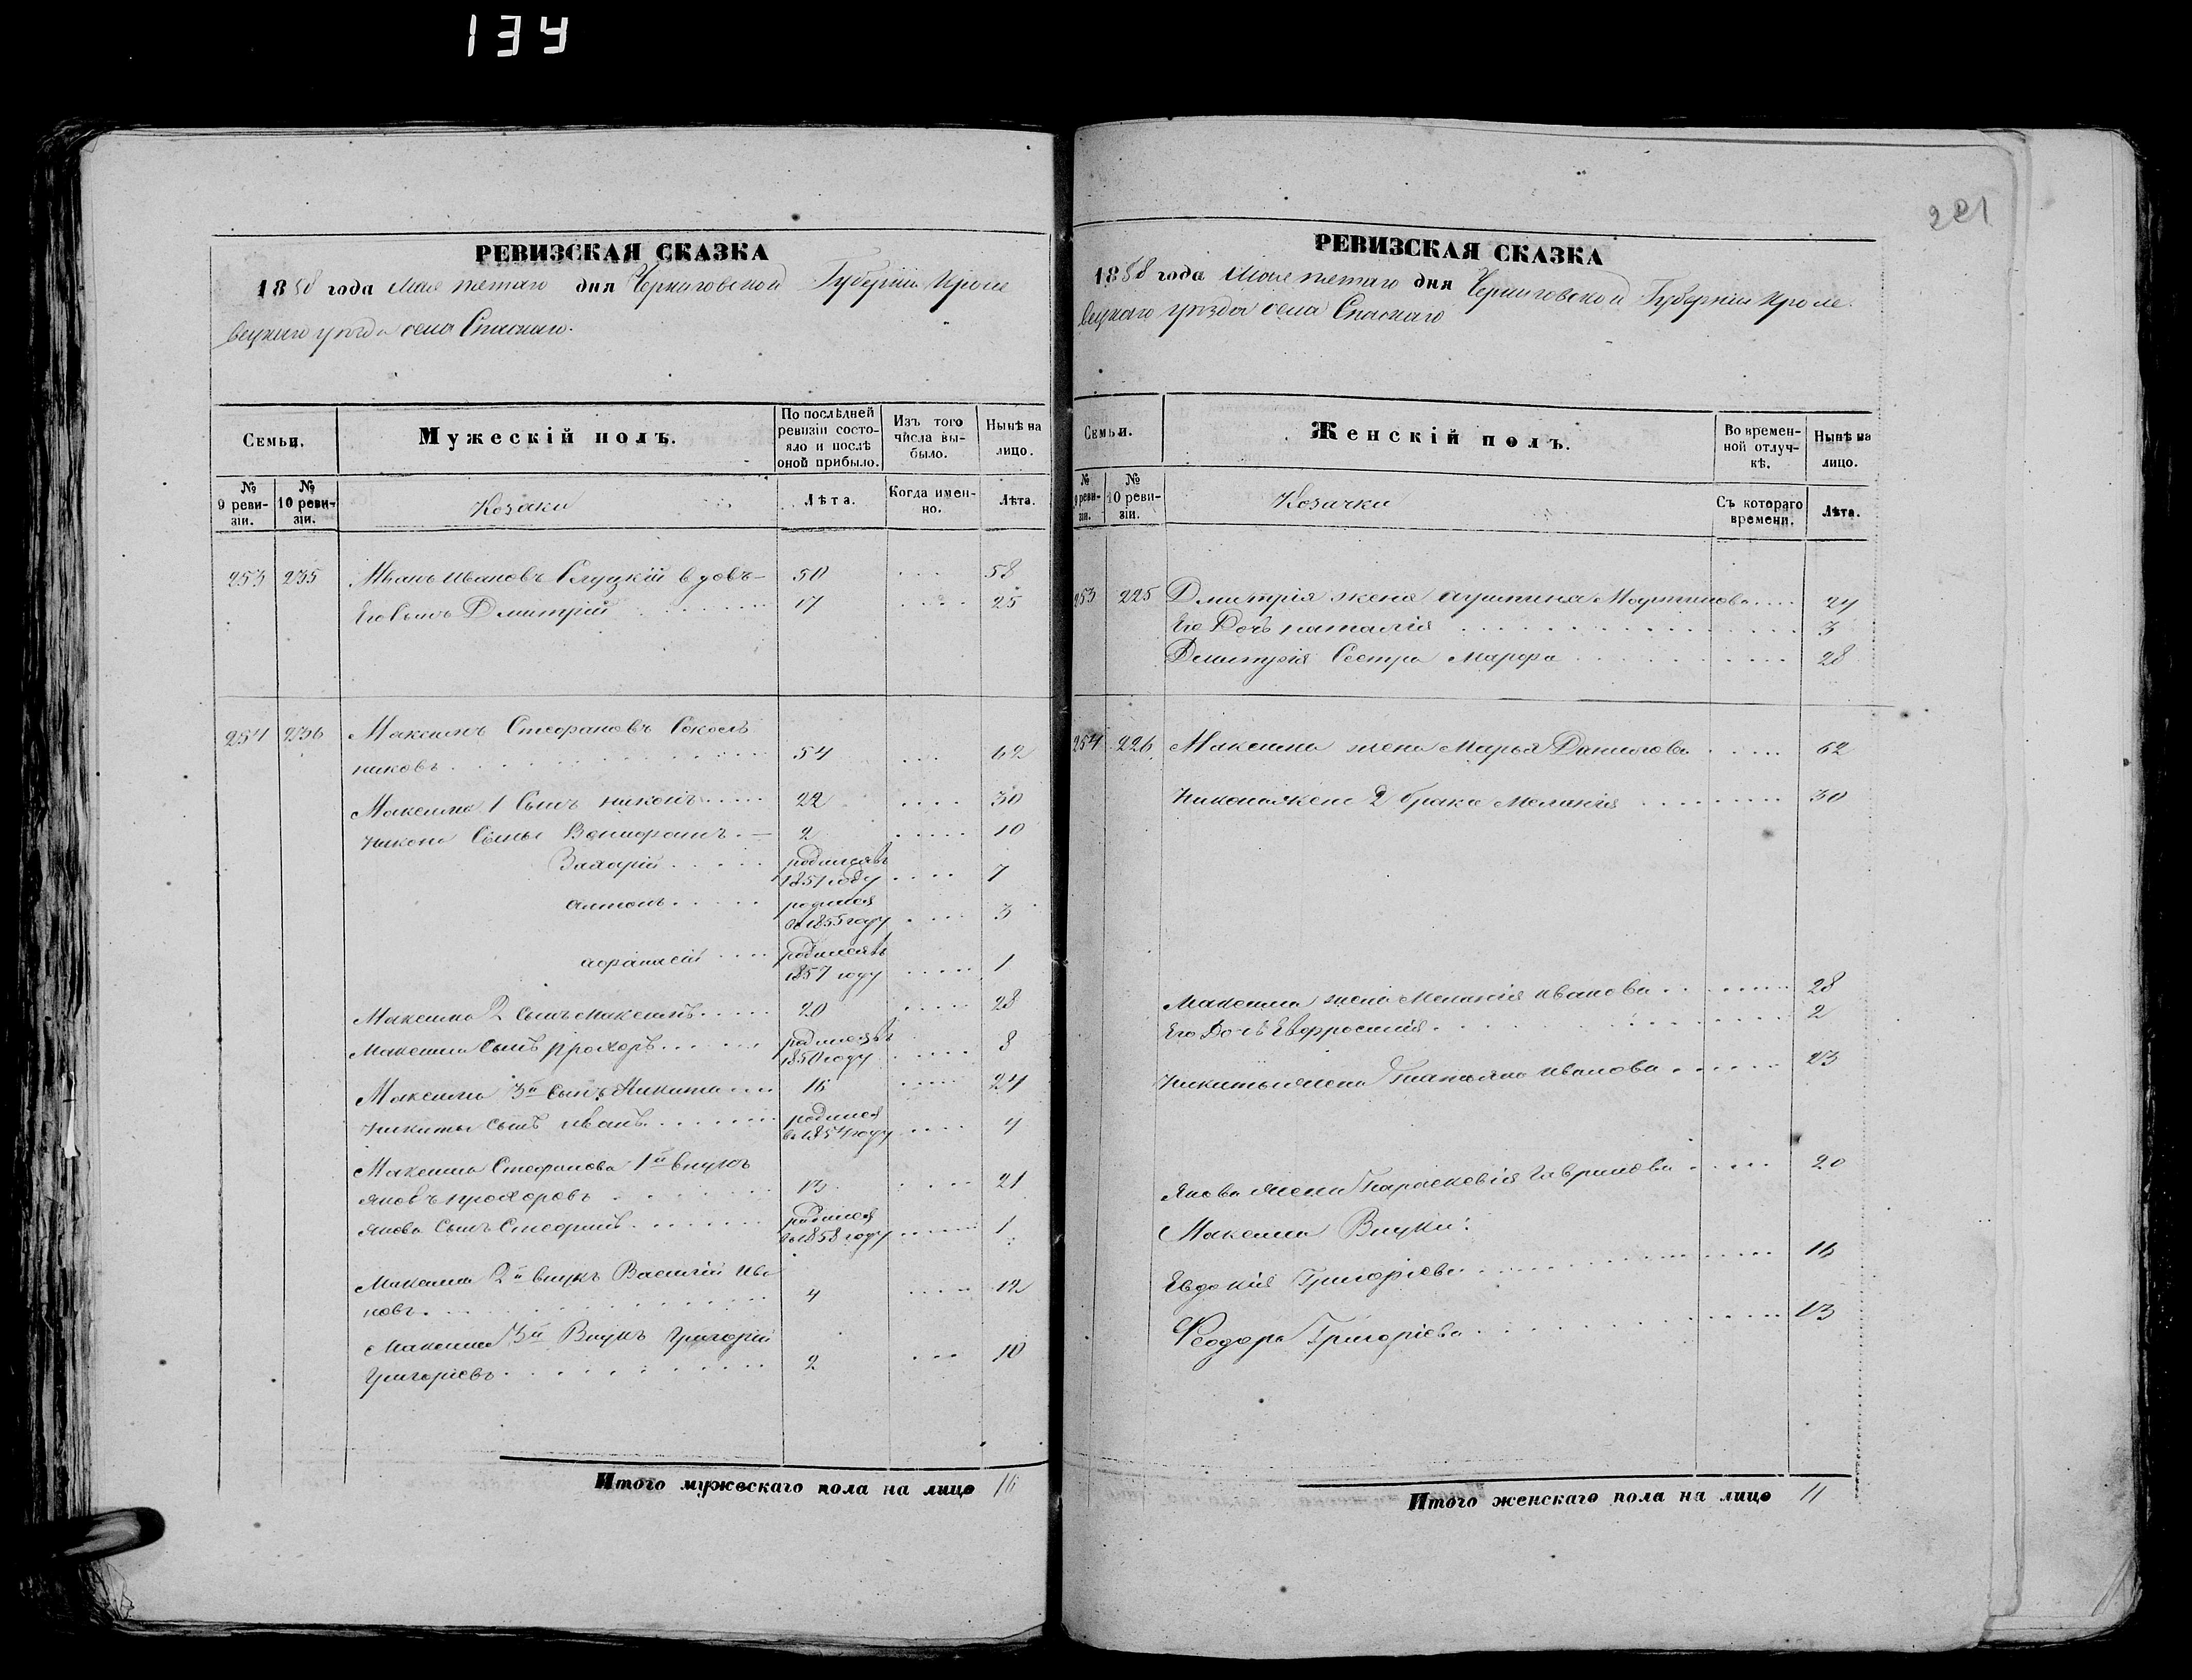 134
221
РЕВИЗСКАЯ СКАЗКА
1858 года Мая пятаго дня Черниговской Губерніи Кроле
вецкаго уѣзда села Спаскаго.
Семьи.
Мужескій полъ.
По послѣдней ревизіи состояло и послѣ оной прибыло.
Изъ того числа выбыло.
Нынѣ на лицо.
№ 9 ревизіи.
№ 10 ревизіи.
Козаки
Лѣта.
Когда именно.
Лѣта.
253 235 Иванъ Ивановъ Слуцкій вдовъ 50 58
Его Сынъ Дмитрій 17 25
254 236 Максимъ Стефановъ Соколь
никовъ 54 62
Максима 1 Сынъ Никонъ 22 30
Никона Сыны Вонифатъ 2 10
Захарій родился въ 1851 году 7
Антонъ родился въ 1855 году 3
Афанасій родился въ 1857 году 1
Максима 2 Сынъ Максимъ 20 28
Максима Сынъ Прохоръ родился въ 1850 году 8
Максима 3й Сынъ Никита 16 24
Никиты Сынъ Иванъ родился въ 1854 году 4
Максима Стефанова 1й внукъ
Яковъ Прохоровъ 13 21
Якова Сынъ Стефанъ родился въ 1858 году 1
Максима 2й внукъ Василій Ива
новъ 4 12
Максима 3й Внукъ Григорій
Григоріевъ 2 10
Итого мужескаго пола на лицо 16
РЕВИЗСКАЯ СКАЗКА
1858 года Мая пятаго дня Черниговской Губерніи Кроле
вецкаго уѣзда села Спаскаго
Семьи.
Женскій полъ.
Во временной отлучкѣ.
Нынѣ на лицо.
№ 9 ревизіи.
№ 10 ревизіи.
Козачки
Съ котораго времени.
Лѣта.
253 225 Дмитрія жена Мартинова 24
Его Дочь Наталія 3
Дмитрія Сестра Марфа 28
254 226 Максима жена Марья Данилова 62
Никона жена 2 брака Меланія 30
Максима жена Меланія Иванова 28
Его Дочь Евфросинія 2
Никиты жена Татьяна Иванова 23
Якова жена Параскевія Гаврилова 20
Максима Внуки:
Евдокія Григоріева 16
Феодора Григоріева 13
Итого женскаго пола на лицо 11